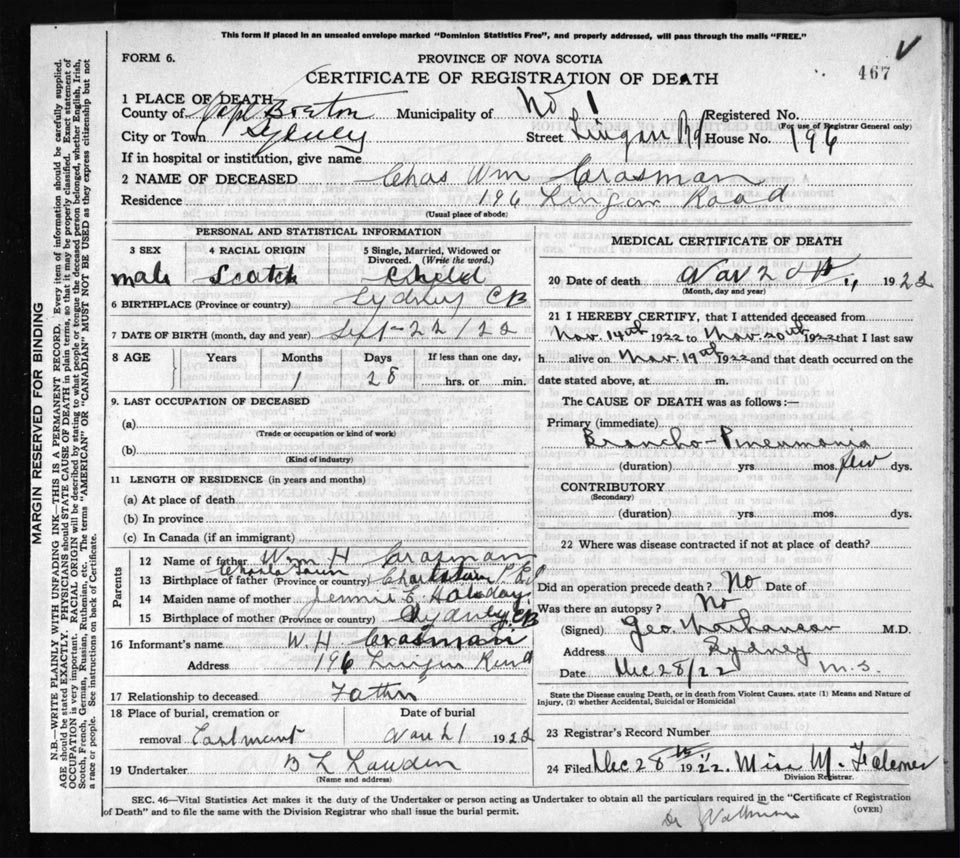 This form if placed in an unsealed envelope marked "Dominion Statistics Free", and properly addressed, will pass through the mails "FREE."
FORM 6.
PROVINCE OF NOVA SCOTIA
467
CERTIFICATE OF REGISTRATION OF DEATH
1 PLACE OF DEATH
County of Cape Breton Municipality of No 1 Registered No.
(For use of Registrar General only)
City or Town Sydney Street Lingan Rd House No. 196
If in hospital or institution, give name
2 NAME OF DECEASED Chas Wm Crasman
Residence 196 Lingan Road
(Usual place of abode)
PERSONAL AND STATISTICAL INFORMATION
3 SEX 4 RACIAL ORIGIN 5 Single, Married, Widowed or Divorced. (Write the word.)
male Scotch Child
6 BIRTHPLACE (Province or country) Sydney CB
7 DATE OF BIRTH (month, day and year) Sept 22/22
8 AGE Years Months Days If less than one day,
1 28 hrs. or min.
9. LAST OCCUPATION OF DECEASED
(a)
(Trade or occupation or kind of work)
(b)
(Kind of industry)
11 LENGTH OF RESIDENCE (in years and months)
(a) At place of death
(b) In province
(c) In Canada (if an immigrant)
Parents
12 Name of father Wm H Crasman
13 Birthplace of father (Province or country) P.E.I.
14 Maiden name of mother Jennie E.
15 Birthplace of mother (Province or country) Sydney CB
16 Informant's name W. H. Crasman
Address 196 Lingan Road
17 Relationship to deceased Father
18 Place of burial, cremation or Date of burial
removal Eastmount Nov 21 1922
19 Undertaker
(Name and address)
MEDICAL CERTIFICATE OF DEATH
20 Date of death Nov 20th 1922
(Month, day and year)
21 I HEREBY CERTIFY, that I attended deceased from
Nov. 14th 1922 to Nov. 20th 1922 that I last saw
h alive on Nov. 19th 1922 and that death occurred on the
date stated above, at m.
The CAUSE OF DEATH was as follows:—
Primary (immediate)
Broncho-Pneumonia
(duration) yrs mos. few dys.
CONTRIBUTORY
(Secondary)
(duration) yrs. mos. dys.
22 Where was disease contracted if not at place of death?
Did an operation precede death? No Date of
Was there an autopsy? No
(Signed) Geo. M.D.
Address Sydney
Date Dec 28/22 M.S.
State the Disease causing Death, or in death from Violent Causes. state (1) Means and Nature of Injury, (2) whether Accidental, Suicidal or Homicidal
23 Registrar's Record Number
24 Filed Dec 28th 1922. Miss M.
Division Registrar.
SEC. 46—Vital Statistics Act makes it the duty of the Undertaker or person acting as Undertaker to obtain all the particulars required in the "Certificate of Registration
of Death" and to file the same with the Division Registrar who shall issue the burial permit. (OVER)
MARGIN RESERVED FOR BINDING
N.B.—WRITE PLAINLY WITH UNFADING INK—THIS IS A PERMANENT RECORD. Every item of information should be carefully supplied.
AGE should be stated EXACTLY. PHYSICIANS should STATE CAUSE OF DEATH in plain terms, so that it may be properly classified. Exact statement of
OCCUPATION is very important. RACIAL ORIGIN will be described by stating to what people or tongue the deceased person belonged, whether English, Irish,
Scotch, French, German, Russian, Ruthenian, etc. The terms "AMERICAN" OR "CANADIAN" MUST NOT BE USED as they express citizenship but not
a race or people. See instructions on back of Certificate.